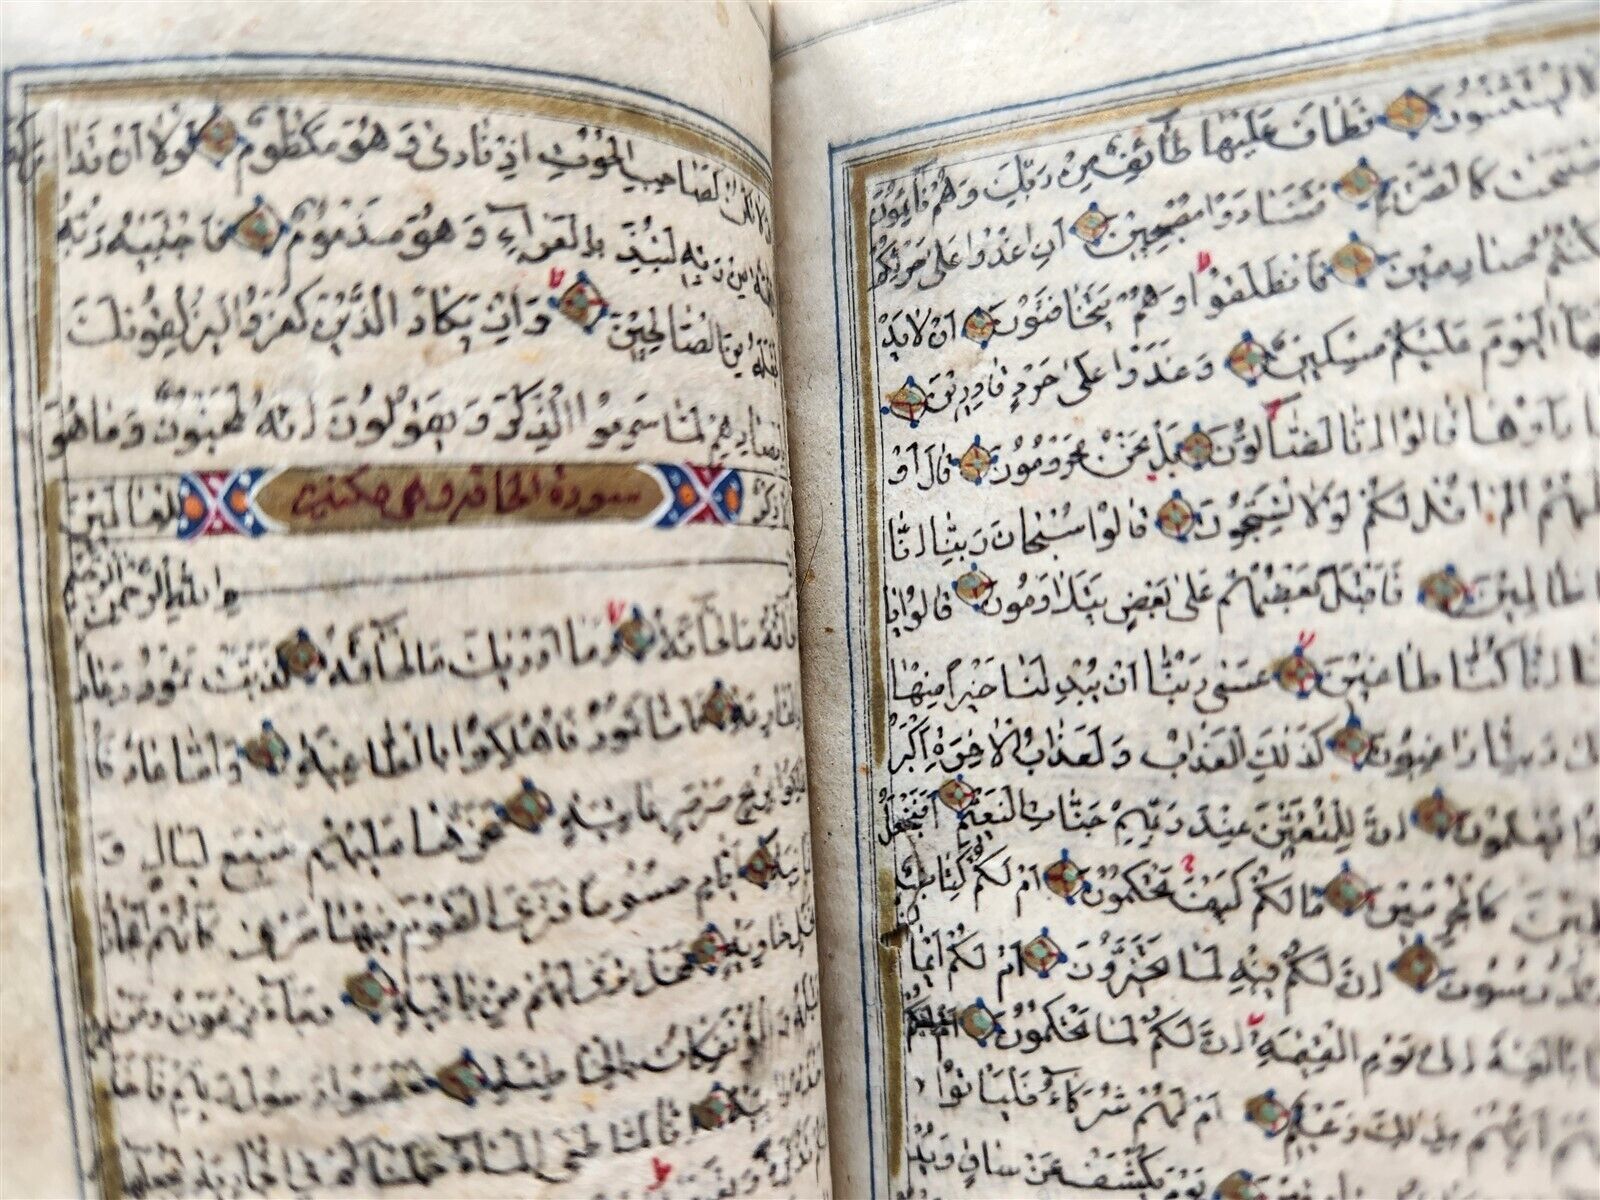 لا يستثنون فطاف عليها طائف من ربك وهم نائمون
فاصبحت كالصريم فتنادوا مصبحين ان اغدوا على حرثكم
كنتم صارمين فانطلقوا وهم يتخافتون ان لا يد
نها اليوم عليكم مسكين وغدوا على حرد قادرين
راوها قالوا انا لضالون بل نحن محرومون قال او
سطهم الم اقل لكم لولا تسبحون قالوا سبحان ربنا انا
كنا ظالمين فاقبل بعضهم على بعض يتلاومون قالوا يا
ويلنا انا كنا طاغين عسى ربنا ان يبدلنا خيرا منها
انا الى ربنا راغبون كذلك العذاب ولعذاب الاخرة اكبر
لو كانوا يعلمون ان للمتقين عند ربهم جنات النعيم افنجعل
المسلمين كالمجرمين ما لكم كيف تحكمون ام لكم كتاب فيه
تدرسون ان لكم فيه لما تخيرون ام لكم ايما
ن علينا بالغة الى يوم القيمة ان لكم لما تحكمون سلهم
ايهم بذلك زعيم ام لهم شركاء فلياتوا
يوم يكشف عن ساق ويد
ولا تكن كصاحب الحوت اذ نادى وهو مكظوم لولا ان تدا
ركه نعمة من ربه لنبذ بالعراء وهو مذموم فاجتبيه ربه
فجعله من الصالحين وان يكاد الذين كفروا ليزلقونك
بابصارهم لما سمعوا الذكر ويقولون انه لمجنون وما هو
الا ذكر للعالمين
سورة الحاقة وهي مكية
بسم الله الرحمن الرحيم
الحاقة ما الحاقة وما ادريك ما الحاقة كذبت ثمود وعاد
بالقارعة فاما ثمود فاهلكوا بالطاغية واما عاد فا
هلكوا بريح صرصر عاتية سخرها عليهم سبع ليال و
ثمانية ايام حسوما فترى القوم فيها صرعى كانهم اعجاز
نخل خاوية فهل ترى لهم من باقية وجاء فرعون ومن
قبله والمؤتفكات بالخاطئة فعصوا رسول ربهم فاخذ
هم اخذة رابية انا لما طغى الماء حملناكم في الجارية لنجعلها